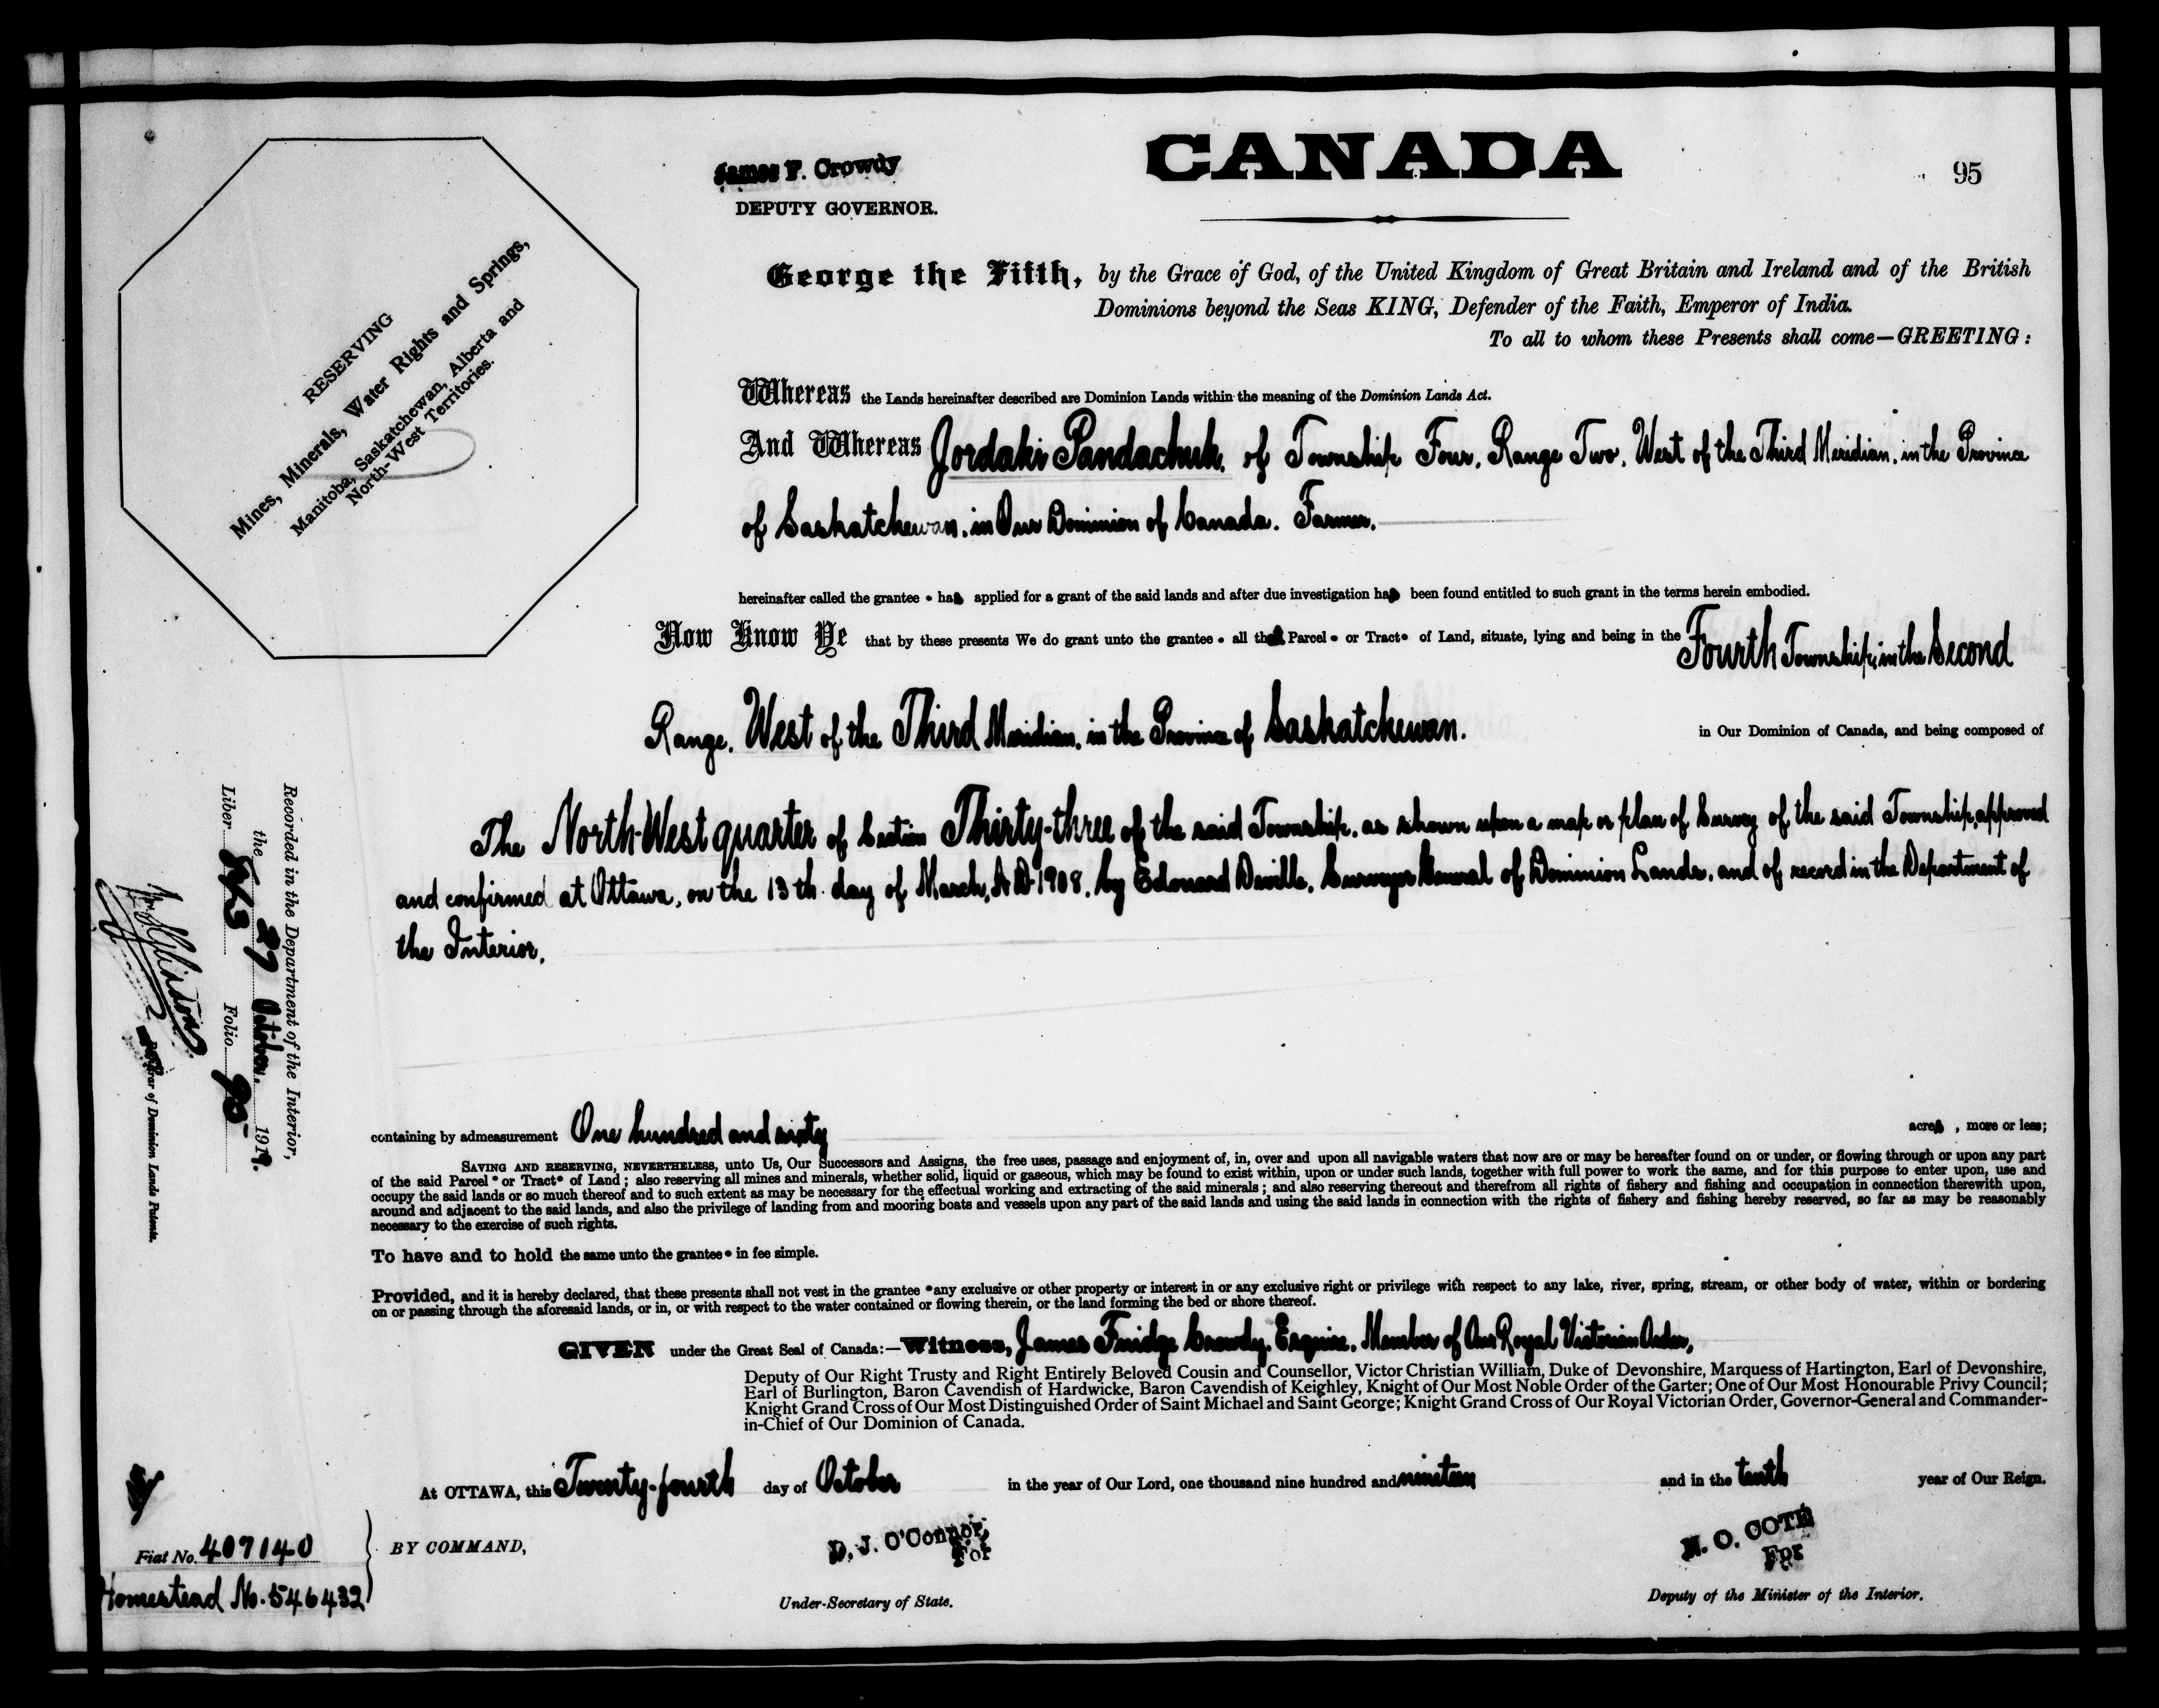 CANADA
95
James F. Crowdy
DEPUTY GOVERNOR.
RESERVING
Mines, Minerals, Water Rights and Springs,
Manitoba, Saskatchewan, Alberta and
North-West Territories.
George the Fifth, by the Grace of God, of the United Kingdom of Great Britain and Ireland and of the British
Dominions beyond the Seas KING, Defender of the Faith, Emperor of India.
To all to whom these Presents shall come—GREETING:
Whereas the Lands hereinafter described are Dominion Lands within the meaning of the Dominion Lands Act.
And Whereas Jordaki Pandachuk, of Township Four, Range Two, West of the Third Meridian, in the Province
of Saskatchewan, in Our Dominion of Canada. Farmer.
hereinafter called the grantee • has applied for a grant of the said lands and after due investigation has been found entitled to such grant in the terms herein embodied.
Now Know Ye that by these presents We do grant unto the grantee • all that Parcel • or Tract • of Land, situate, lying and being in the Fourth Township, in the Second
Range, West of the Third Meridian, in the Province of Saskatchewan. in Our Dominion of Canada, and being composed of
The North-West quarter of Section Thirty-three of the said Township, as shown upon a map or plan of Survey of the said Township, approved
and confirmed at Ottawa, on the 13th day of March, A.D. 1908, by Edouard Deville, Surveyor General of Dominion Lands, and of record in the Department of
the Interior.
containing by admeasurement One hundred and sixty acres, more or less;
SAVING AND RESERVING, NEVERTHELESS, unto Us, Our Successors and Assigns, the free uses, passage and enjoyment of, in, over and upon all navigable waters that now are or may be hereafter found on or under, or flowing through or upon any part
of the said Parcel • or Tract • of Land; also reserving all mines and minerals, whether solid, liquid or gaseous, which may be found to exist within, upon or under such lands, together with full power to work the same, and for this purpose to enter upon, use and
occupy the said lands or so much thereof and to such extent as may be necessary for the effectual working and extracting of the said minerals; and also reserving thereout and therefrom all rights of fishery and fishing and occupation in connection therewith upon,
around and adjacent to the said lands, and also the privilege of landing from and mooring boats and vessels upon any part of the said lands and using the said lands in connection with the rights of fishery and fishing hereby reserved, so far as may be reasonably
necessary to the exercise of such rights.
To have and to hold the same unto the grantee • in fee simple.
Provided, and it is hereby declared, that these presents shall not vest in the grantee • any exclusive or other property or interest in or any exclusive right or privilege with respect to any lake, river, spring, stream, or other body of water, within or bordering
on or passing through the aforesaid lands, or in, or with respect to the water contained or flowing therein, or the land forming the bed or shore thereof.
GIVEN under the Great Seal of Canada:—Witness, James Fuidge Crowdy, Esquire, Member of Our Royal Victorian Order,
Deputy of Our Right Trusty and Right Entirely Beloved Cousin and Counsellor, Victor Christian William, Duke of Devonshire, Marquess of Hartington, Earl of Devonshire,
Earl of Burlington, Baron Cavendish of Hardwicke, Baron Cavendish of Keighley, Knight of Our Most Noble Order of the Garter; One of Our Most Honourable Privy Council;
Knight Grand Cross of Our Most Distinguished Order of Saint Michael and Saint George; Knight Grand Cross of Our Royal Victorian Order, Governor-General and Commander-
in-Chief of Our Dominion of Canada.
At OTTAWA, this Twenty-fourth day of October in the year of Our Lord, one thousand nine hundred and nineteen and in the tenth year of Our Reign.
BY COMMAND,
D. J. O'Connor,
For
Under-Secretary of State.
N. O. COTE
For
Deputy of the Minister of the Interior.
Recorded in the Department of the Interior,
the 27 October. 1919.
Liber Folio 95
Registrar of Dominion Lands Patents.
Fiat No. 407140
Homestead No. 546432